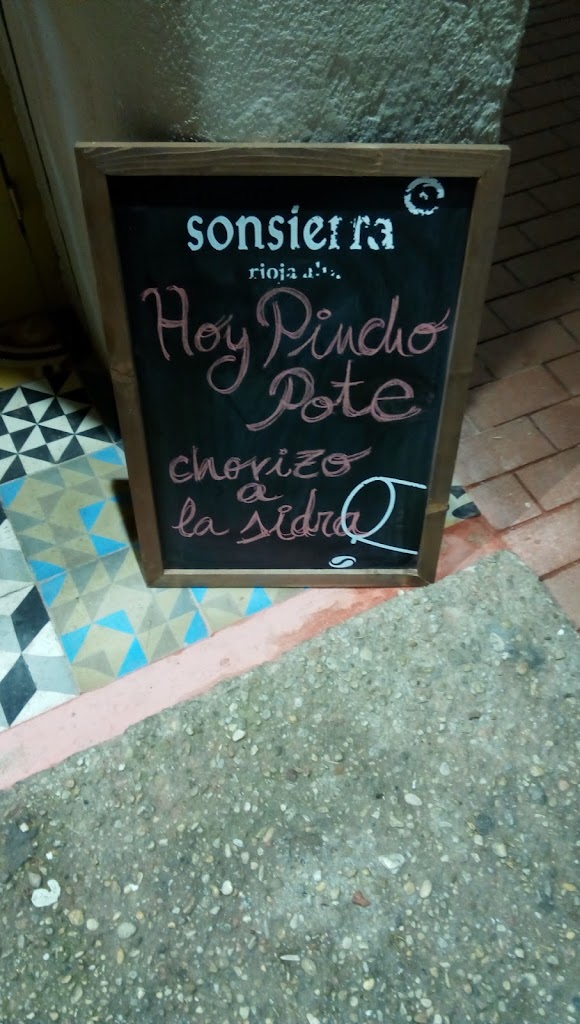 sonsierra
rioja alta
Hoy Pincho
Pote
chorizo
a
la sidra